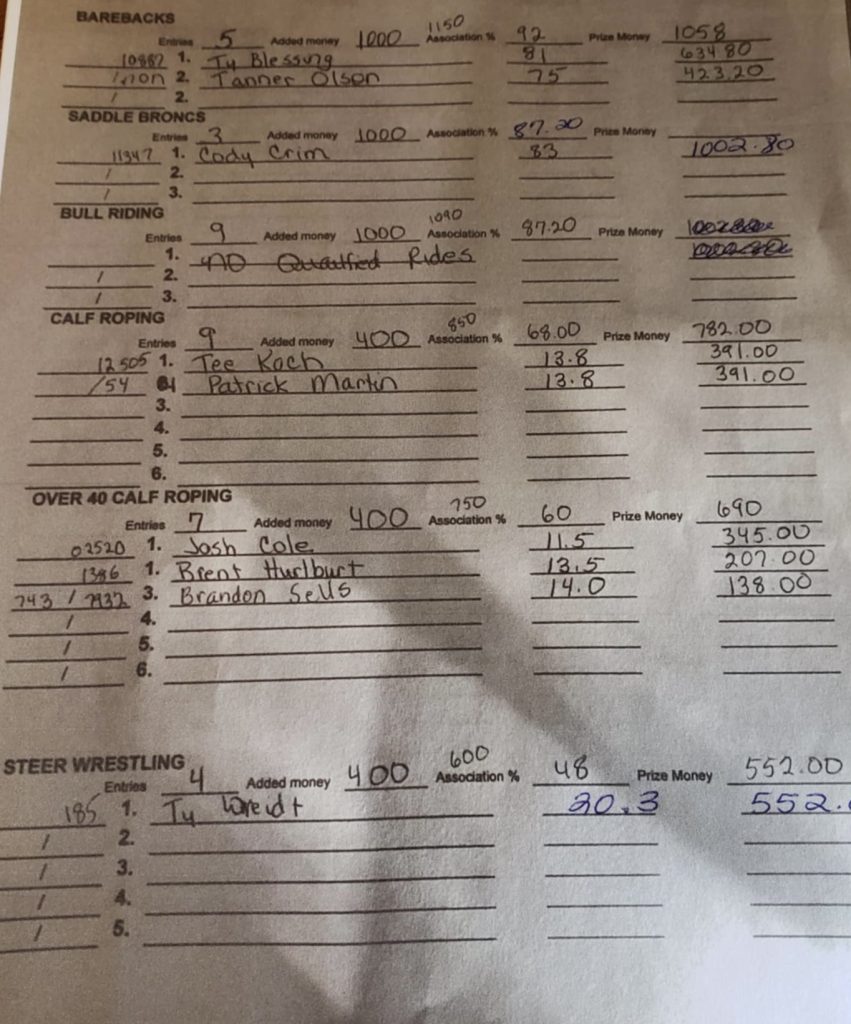 BAREBACKS
Entries 5 Added money 1000 1150 Association % 92 Prize Money 1058
10862 1. Ty Blessing 81 634.80
/non 2. Tanner Olson 75 423.20
/ 2.
SADDLE BRONCS
Entries 3 Added money 1000 Association % 87.20 Prize Money
11347 1. Cody Crim 83 1002.80
/ 2.
/ 3.
BULL RIDING
Entries 9 Added money 1000 1090 Association % 87.20 Prize Money
1. No Qualified Rides
/ 2.
/ 3.
CALF ROPING
Entries 9 Added money 400 850 Association % 68.00 Prize Money 782.00
12505 1. Tee Koch 13.8 391.00
/54 1 Patrick Martin 13.8 391.00
3.
4.
5.
6.
OVER 40 CALF ROPING
Entries 7 Added money 400 750 Association % 60 Prize Money 690
02520 1. Josh Cole 11.5 345.00
1386 1. Brent Hurlburt 13.5 207.00
743 / 7932 3. Brandon Sells 14.0 138.00
/ 4.
/ 5.
/ 6.
STEER WRESTLING
Entries 4 Added money 400 600 Association % 48 Prize Money 552.00
185 1. Ty Wreidt 20.3 552.
/ 2.
/ 3.
/ 4.
/ 5.